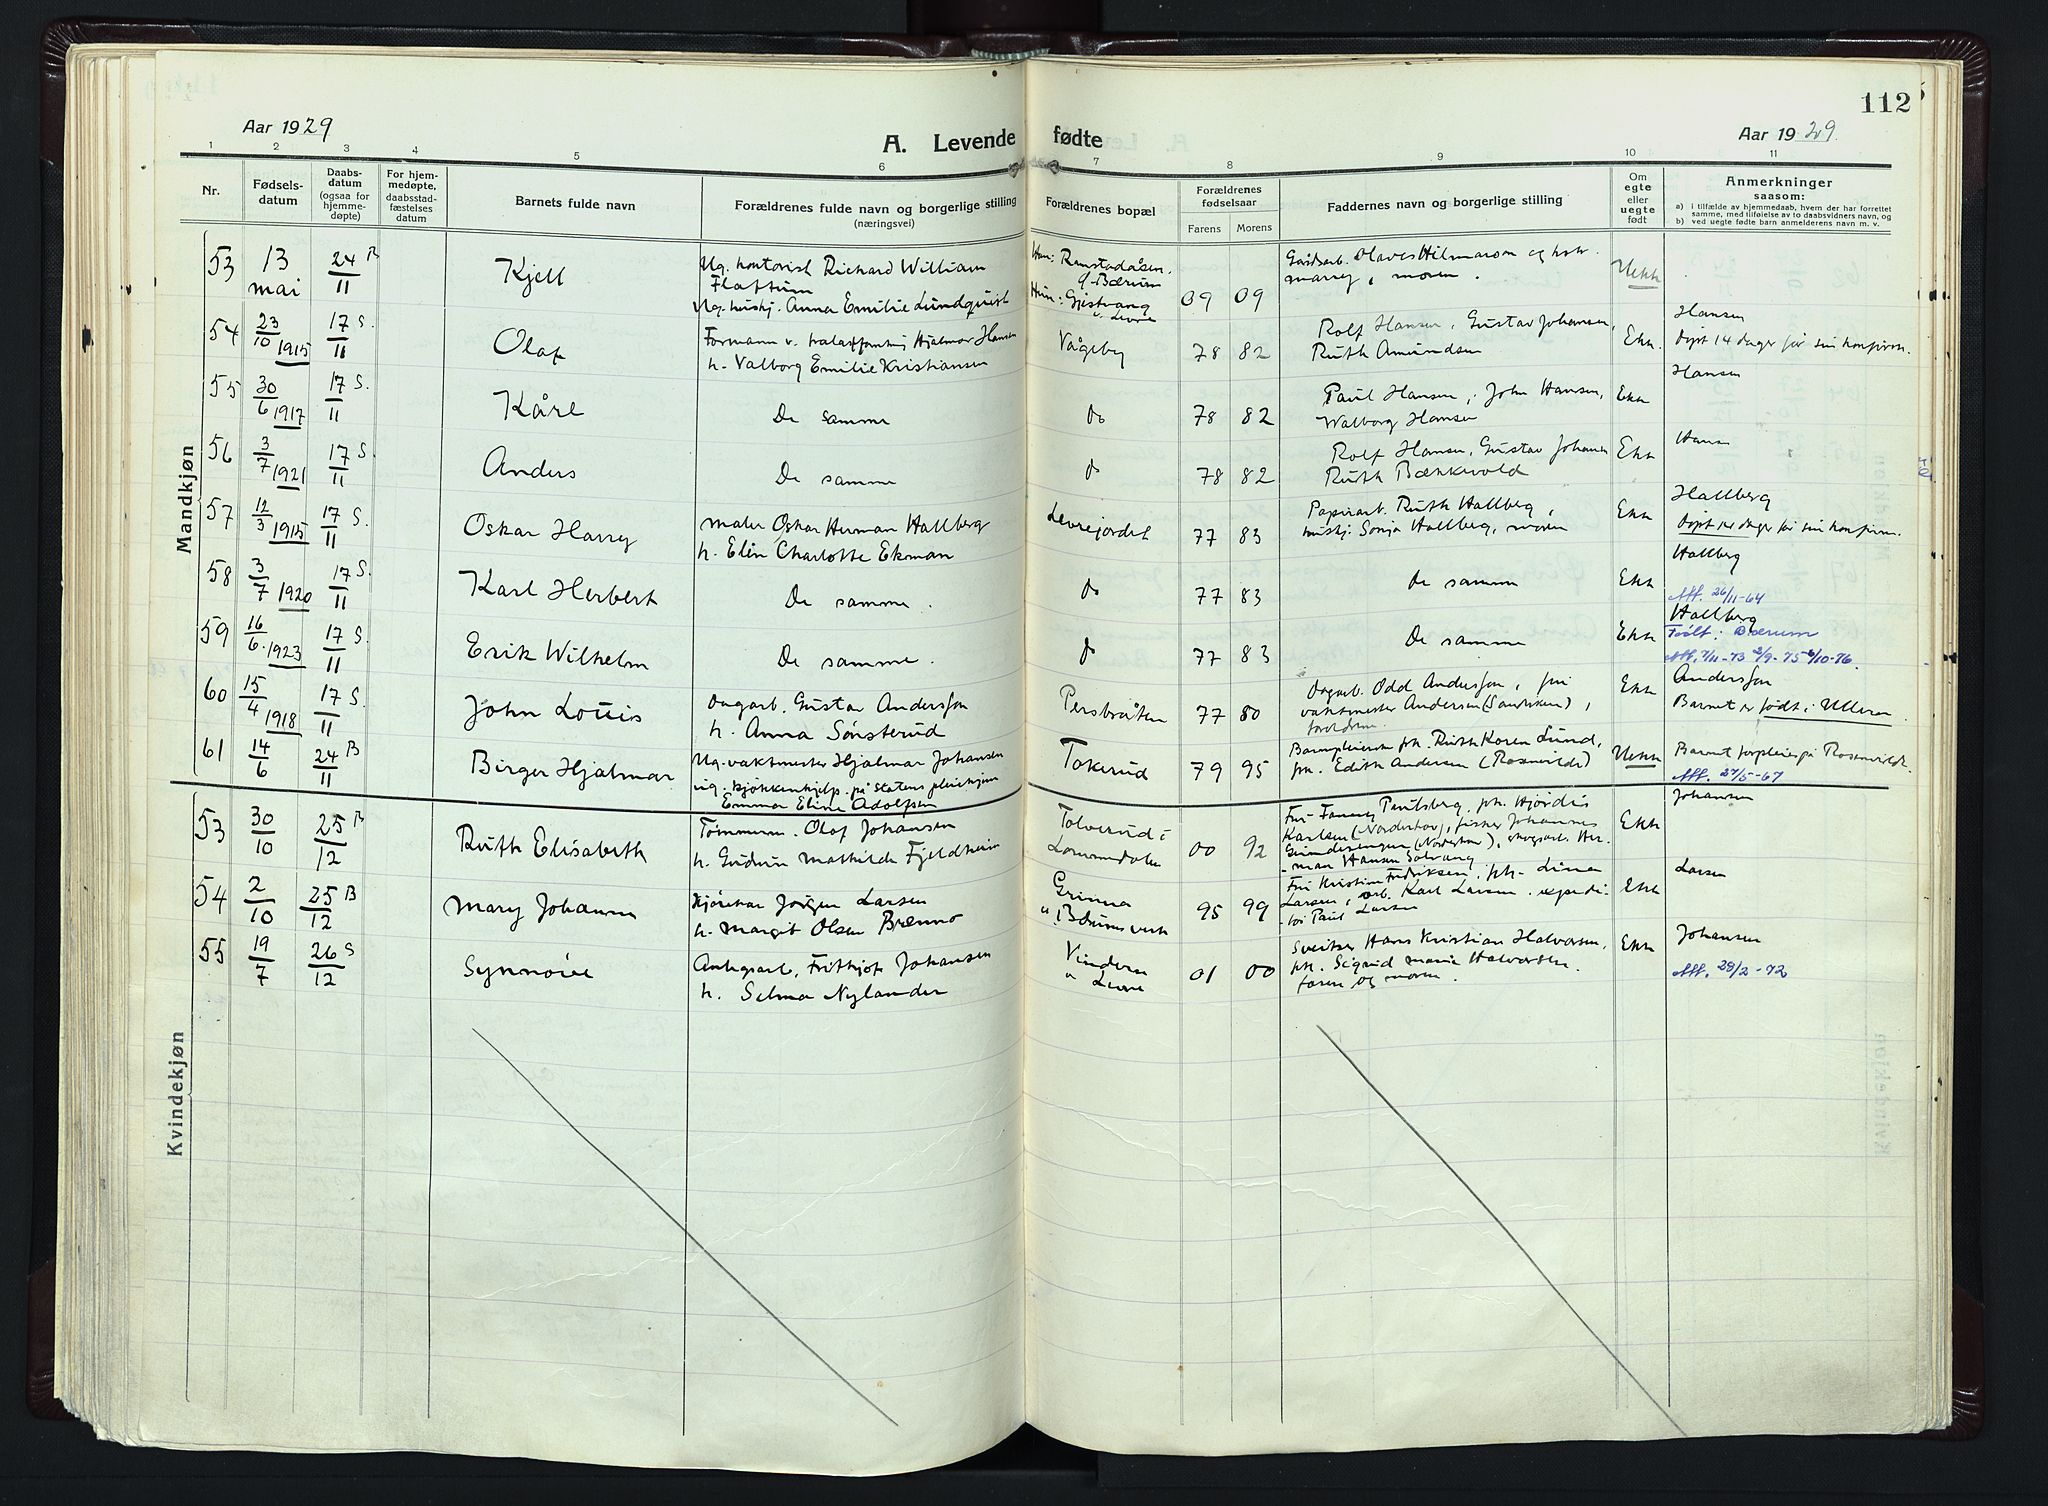 112
Aar 1929
A. Levende fødte
Aar 1929
1 2 3 4 5 6 7 8 9 10 11
Nr.
Fødsels-
datum
Daabs-
datum
(ogsaa for
hjemme-
døpte)
For hjem-
medøpte,
daabsstad-
fæstelses
datum
Barnets fulde navn
Forældrenes fulde navn og borgerlige stilling
(næringsvei)
Forældrenes bopæl
Forældrenes
fødselsaar
Farens Morens
Faddernes navn og borgerlige stilling
Om
egte
eller
uegte
født
Anmerkninger
saasom:
a) i tilfælde av hjemmedaab, hvem der har forrettet
samme, med tilføielse av to daabsvidners navn, og
b) ved uegte fødte barn anmelderens navn m. v.
Mandkjøn
53 13 mai 24/11 B Kjell
Ug. kontorist Richard William
Flattum
Ug. hushj. Anna Emilie Lundquist
Han: Ramstadåsen.
Bærum
Hun: Gjistvang
09 09
Olaves Hilmarsen og
moren.
Uekte
54 23/10 1915 17/11 S. Olaf
Formann v. Hjalmar Hansen
h. Valborg Emilie Kristiansen
Vågeby 78 82
Rolf Hansen, Gustav Johansen,
Ruth Amundsen
Ekte.
Hansen
Døpt 14 dager før sin konfirm.
55 30/6 1917 17/11 S. Kåre
De samme
do 78 82
Paul Hansen, John Hansen,
Walborg Hansen
Ekte
Hansen
56 3/7 1921 17/11 S. Anders
De samme
do 78 82
Rolf Hansen, Gustav Johansen
Ruth
Ekte
Hansen
57 12/3 1915 17/11 S. Oskar Harry
Maler Oskar Herman Hallberg
h. Elin Charlotte Ekman
Levrejordet 77 83
Papirarb. Ruth Hallberg,
hushj. Sonja Hallberg, moren
Ekte
Hallberg
Døpt 14 dager før sin konfirm.
58 3/7 1920 17/11 S. Karl Herbert
De samme.
do 77 83
De samme
Ekte
Hallberg
Att. 26/11-64
59 16/6 1923 17/11 S. Erik Wilhelm
De samme.
do 77 83
De samme
Ekte
Hallberg
Født: Bærum
Att. 7/11-73 2/9-75 6/10-76.
60 15/4 1918 17/11 S. John Louis
Dagarb. Gustav Andersson
h. Anna Sønsterud
Persbråten 77 80
Dagarb. Odd Andersson, fru
vaktmester Andersen (Sandviken),
foreldrene.
Ekte
Andersson
Barnet er født i Ullern.
61 14/6 24/11 B Birger Hjalmar
Ug. vaktmester Hjalmar Johansen
ug. kjøkkenhjelp på Statens pleiehjem
Emma Eline Adolfsen
Tokerud 79 95
Barnepleierske frk. Ruth Koren Lund,
frk. Edith Andersen (Rosenvilde)
Uekte
Barnet forpleies på Rosenvilde.
Att. 27/5-67
Kvindekjøn
53 30/10 25/12 B Ruth Elisabeth
Tømmerm. Olaf Johansen
h. Gudrun Mathilde Fjeldheim
Tolverud i
Lommedalen
00 92
Fru Fanny frk. Hjørdis
Karlsen (Norderhov), fisker Johannes
(Norderhov), skogsarb. Her-
man Hansen Solvang
Ekte
Johansen
54 2/10 25/12 B Mary Johanne
Kjørekar Jørgen Larsen
h. Margit Olsen Brenno
Grinna
v/ Bærums verk
95 99
Fru Kristine Fredriksen, frk. Lina
Larsen, arb. Karl Larsen, expedi-
tør Paul Larsen
Ekte
Larsen
55 19/7 26/12 S Synnøve
Anlegsarb. Frithjof Johansen
h. Selma Nylander
Vindern
v. Levre
01 00
Sveitser Hans Kristian Halvorsen,
frk. Sigrid Marie Halvorsen.
faren og moren.
Ekte
Johansen
Att. 28/2-72